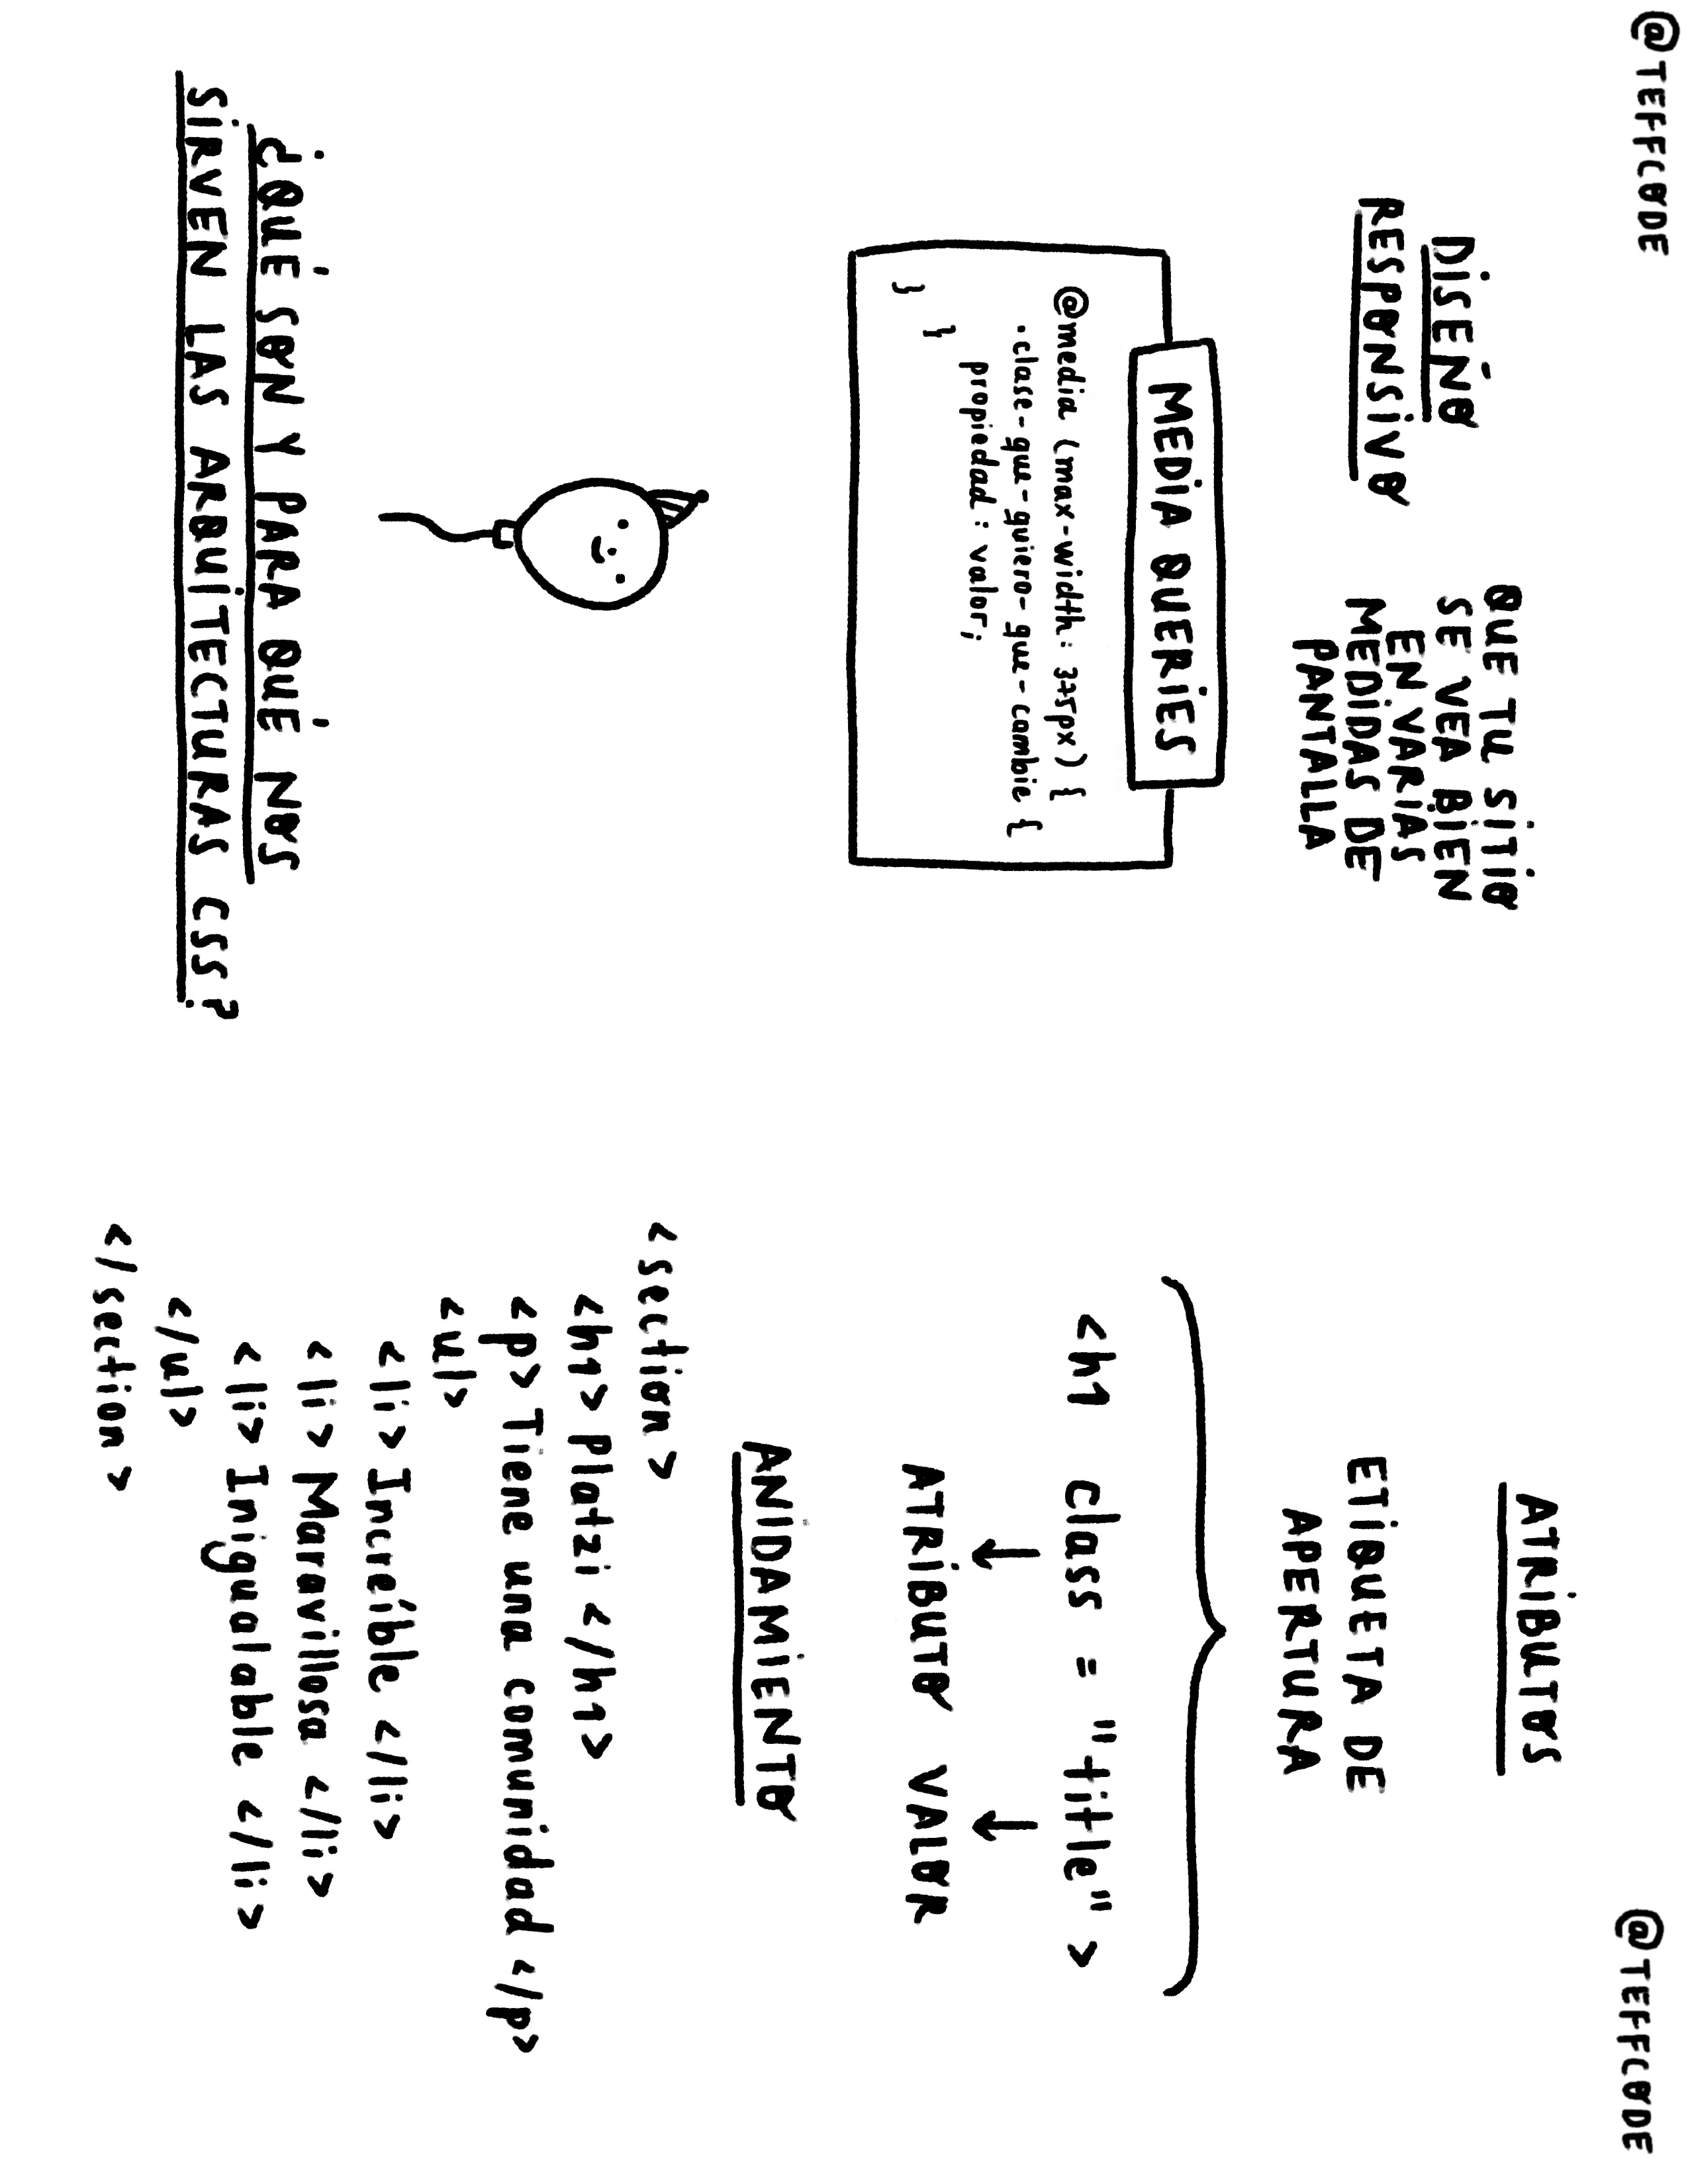 @TEFFCODE
DISEÑO
RESPONSIVO
QUE TU SITIO
SE VEA BIEN
EN VARIAS
MEDIDAS DE
PANTALLA
MEDIA QUERIES
@media (max-width: 375px) {
.clase-que-quiero-que-cambie {
propiedad: valor;
}
}
¿QUÉ SON Y PARA QUÉ NOS
SIRVEN LAS ARQUITECTURAS CSS?
@TEFFCODE
ATRIBUTOS
ETIQUETA DE
APERTURA
<h1 class = "title" >
ATRIBUTO VALOR
ANIDAMIENTO
<section>
<h1> Platzi </h1>
<p> Tiene una comunidad </p>
<ul>
<li> Increíble </li>
<li> Maravillosa </li>
<li> Inigualable </li>
</ul>
</section>